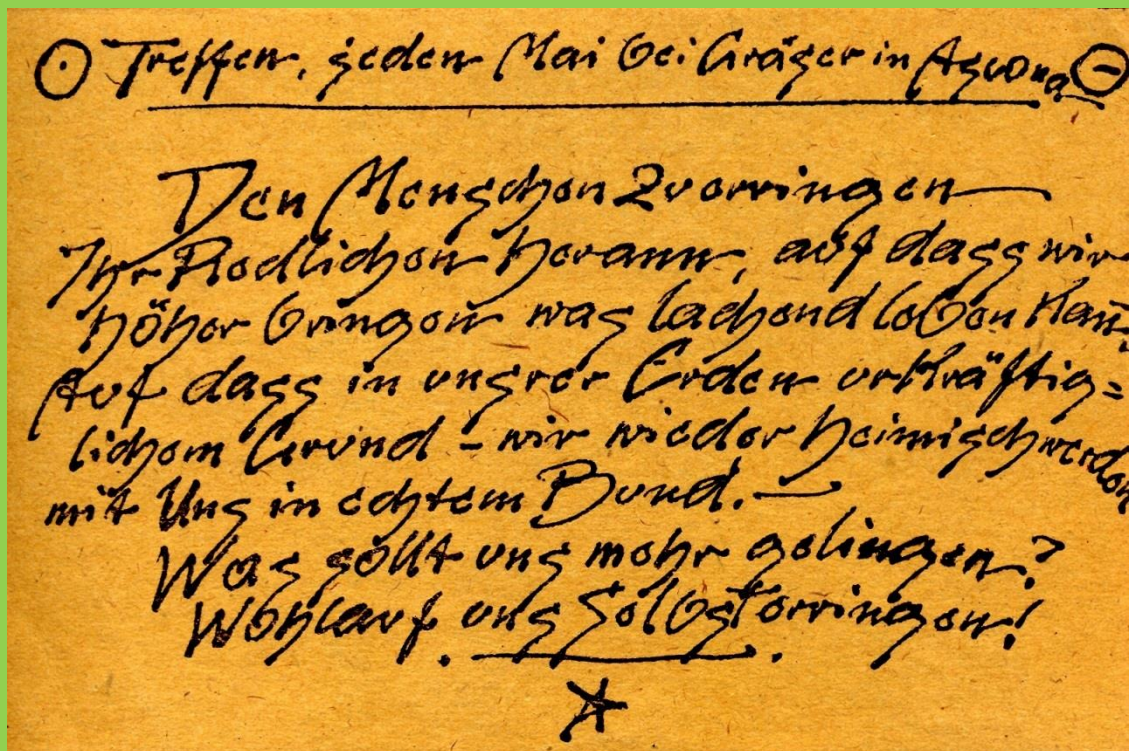 Treffen, jeden Mai bei Gräser in Ascona
Den Menschen zuerringen
Ihr Redlichen herann, auf dass wir
höher bringen was lachend leben kañ,
Auf dass in unsrer Erden urkräftig=
lichem Grund – wir wieder heimisch werden
mit Uns in echtem Bund. –
Was sollt uns mehr gelingen?
Wohlauf uns Selbsterringen!